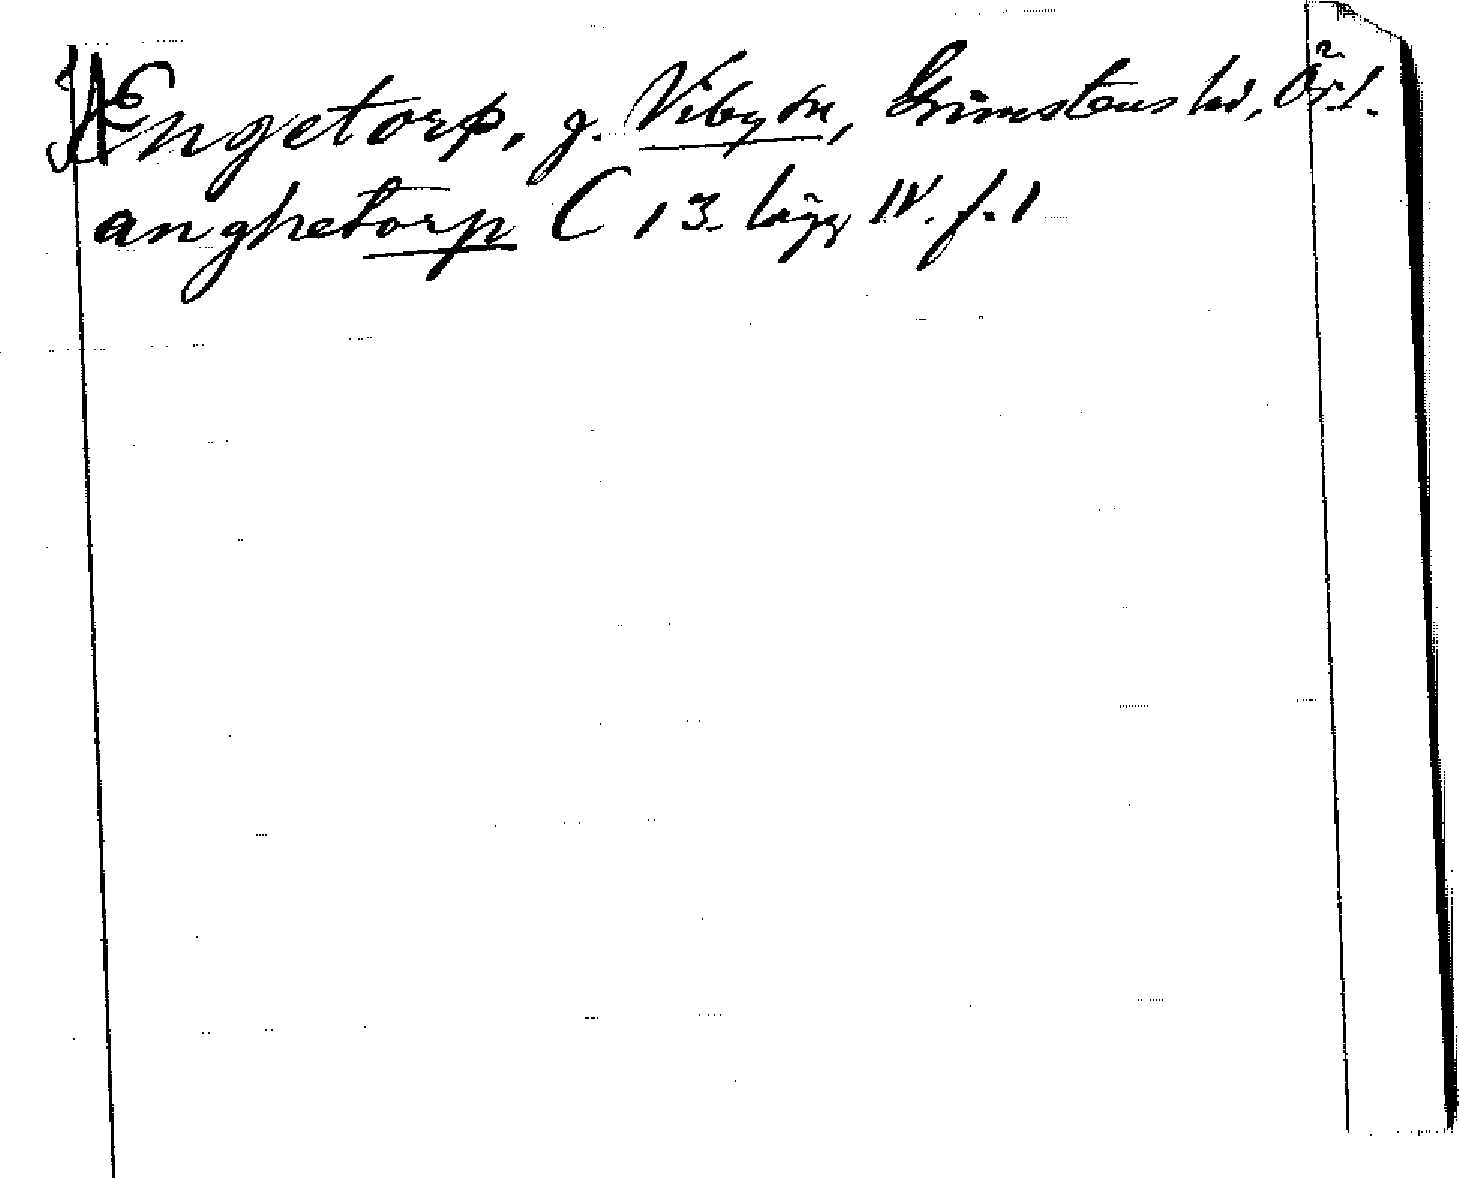 Ængetorp, g. Viby sn, Grimstens hd, Ör. l.
anghetorp C 13. lägg IV. f. 1